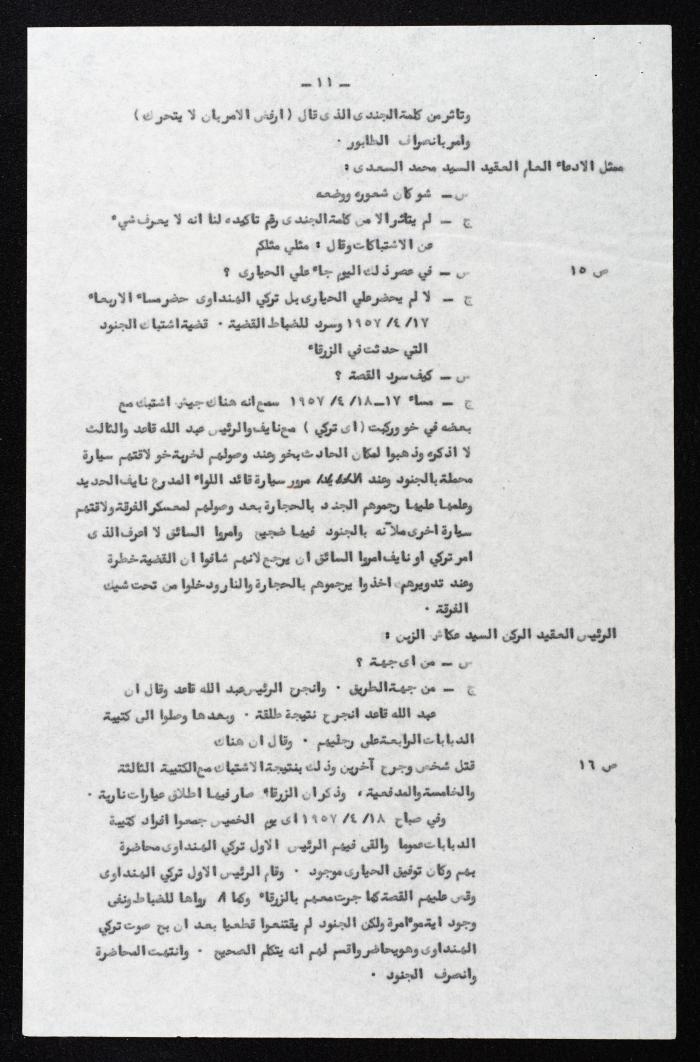 ـ ١١ ـ
وتاثر من كلمة الجندى الذى قال ( ارفض الامر بان لا يتحرك )
وامر بانصراف الطابور .
ممثل الادعاء العام العقيد السيد محمد السعدى :
س ـ شو كان شعوره ووضعه
ج ـ لم يتاثر الا من كلمة الجندى رغم تاكيده لنا انه لا يعرف شيء
عن الاشتباكات وقال : مثلي مثلكم
ص ١٥ س ـ في عصر ذلك اليوم جاء علي الحيارى ؟
ج ـ لا لم يحضر علي الحيارى بل تركي الهنداوى حضر مساء الاربعاء
١٧/ ٤/ ١٩٥٧ وسرد للضباط القضية . قضية اشتباك الجنود
التي حدثت في الزرقاء
س ـ كيف سرد القصة ؟
ج ـ مساء ١٧ـ١٨/ ٤/ ١٩٥٧ سمع انه هناك جيش اشتبك مع
بعضه في خو وركبت ( اى تركي ) مع نايف والرئيس عبد الله قاعد والثالث
لا اذكره وذهبوا لمكان الحادث بخو وعند وصولهم لخربة خو لاقتهم سيارة
محملة بالجنود وعند مرور سيارة قائد اللواء المدرع نايف الحديد
وعلمها عليها رجموهم الجند بالحجارة بعد وصولهم لمعسكر الفرقة ولاقتهم
سيارة اخرى ملآنه بالجنود فيها ضجيج وامروا السائق لا اعرف الذى
امر تركي او نايف امروا السائق ان يرجع لانهم شافوا ان القضية خطرة
وعند تدويرهم اخذوا يرجموهم بالحجارة والنار ودخلوا من تحت شيك
الفرقة .
الرئيس العقيد الركن السيد عكاش الزبن :
س ـ من اى جهة ؟
ج ـ من جهة الطريق . وانجرح الرئيس عبد الله قاعد وقال ان
عبد الله قاعد انجرح نتيجة طلقة . وبعدها وصلوا الى كتيبة
الدبابات الرابعة على رجليهم . وقال ان هناك
ص ١٦ قتل شخص وجرح آخرين وذلك بنتيجة الاشتباك مع الكتيبة الثالثة
والخامسة والمدفعية ، وذكر ان الزرقاء صار فيها اطلاق عيارات نارية .
وفي صباح ١٨/ ٤/ ١٩٥٧ اى يوم الخميس جمعوا افراد كتيبة
الدبابات عموما والقى فيهم الرئيس الاول تركي الهنداوى محاضرة
بهم وكان توفيق الحيارى موجود . وقام الرئيس الاول تركي الهنداوى
وقص عليهم القصة كما جرت معهم بالزرقاء وكما رواها للضباط ونفى
وجود اية موءامرة ولكن الجنود لم يقتنعوا قطعيا بعد ان بح صوت تركي
الهنداوى وهو يحاضر واقسم لهم انه يتكلم الصحيح . وانتهت المحاضرة
وانصرف الجنود .